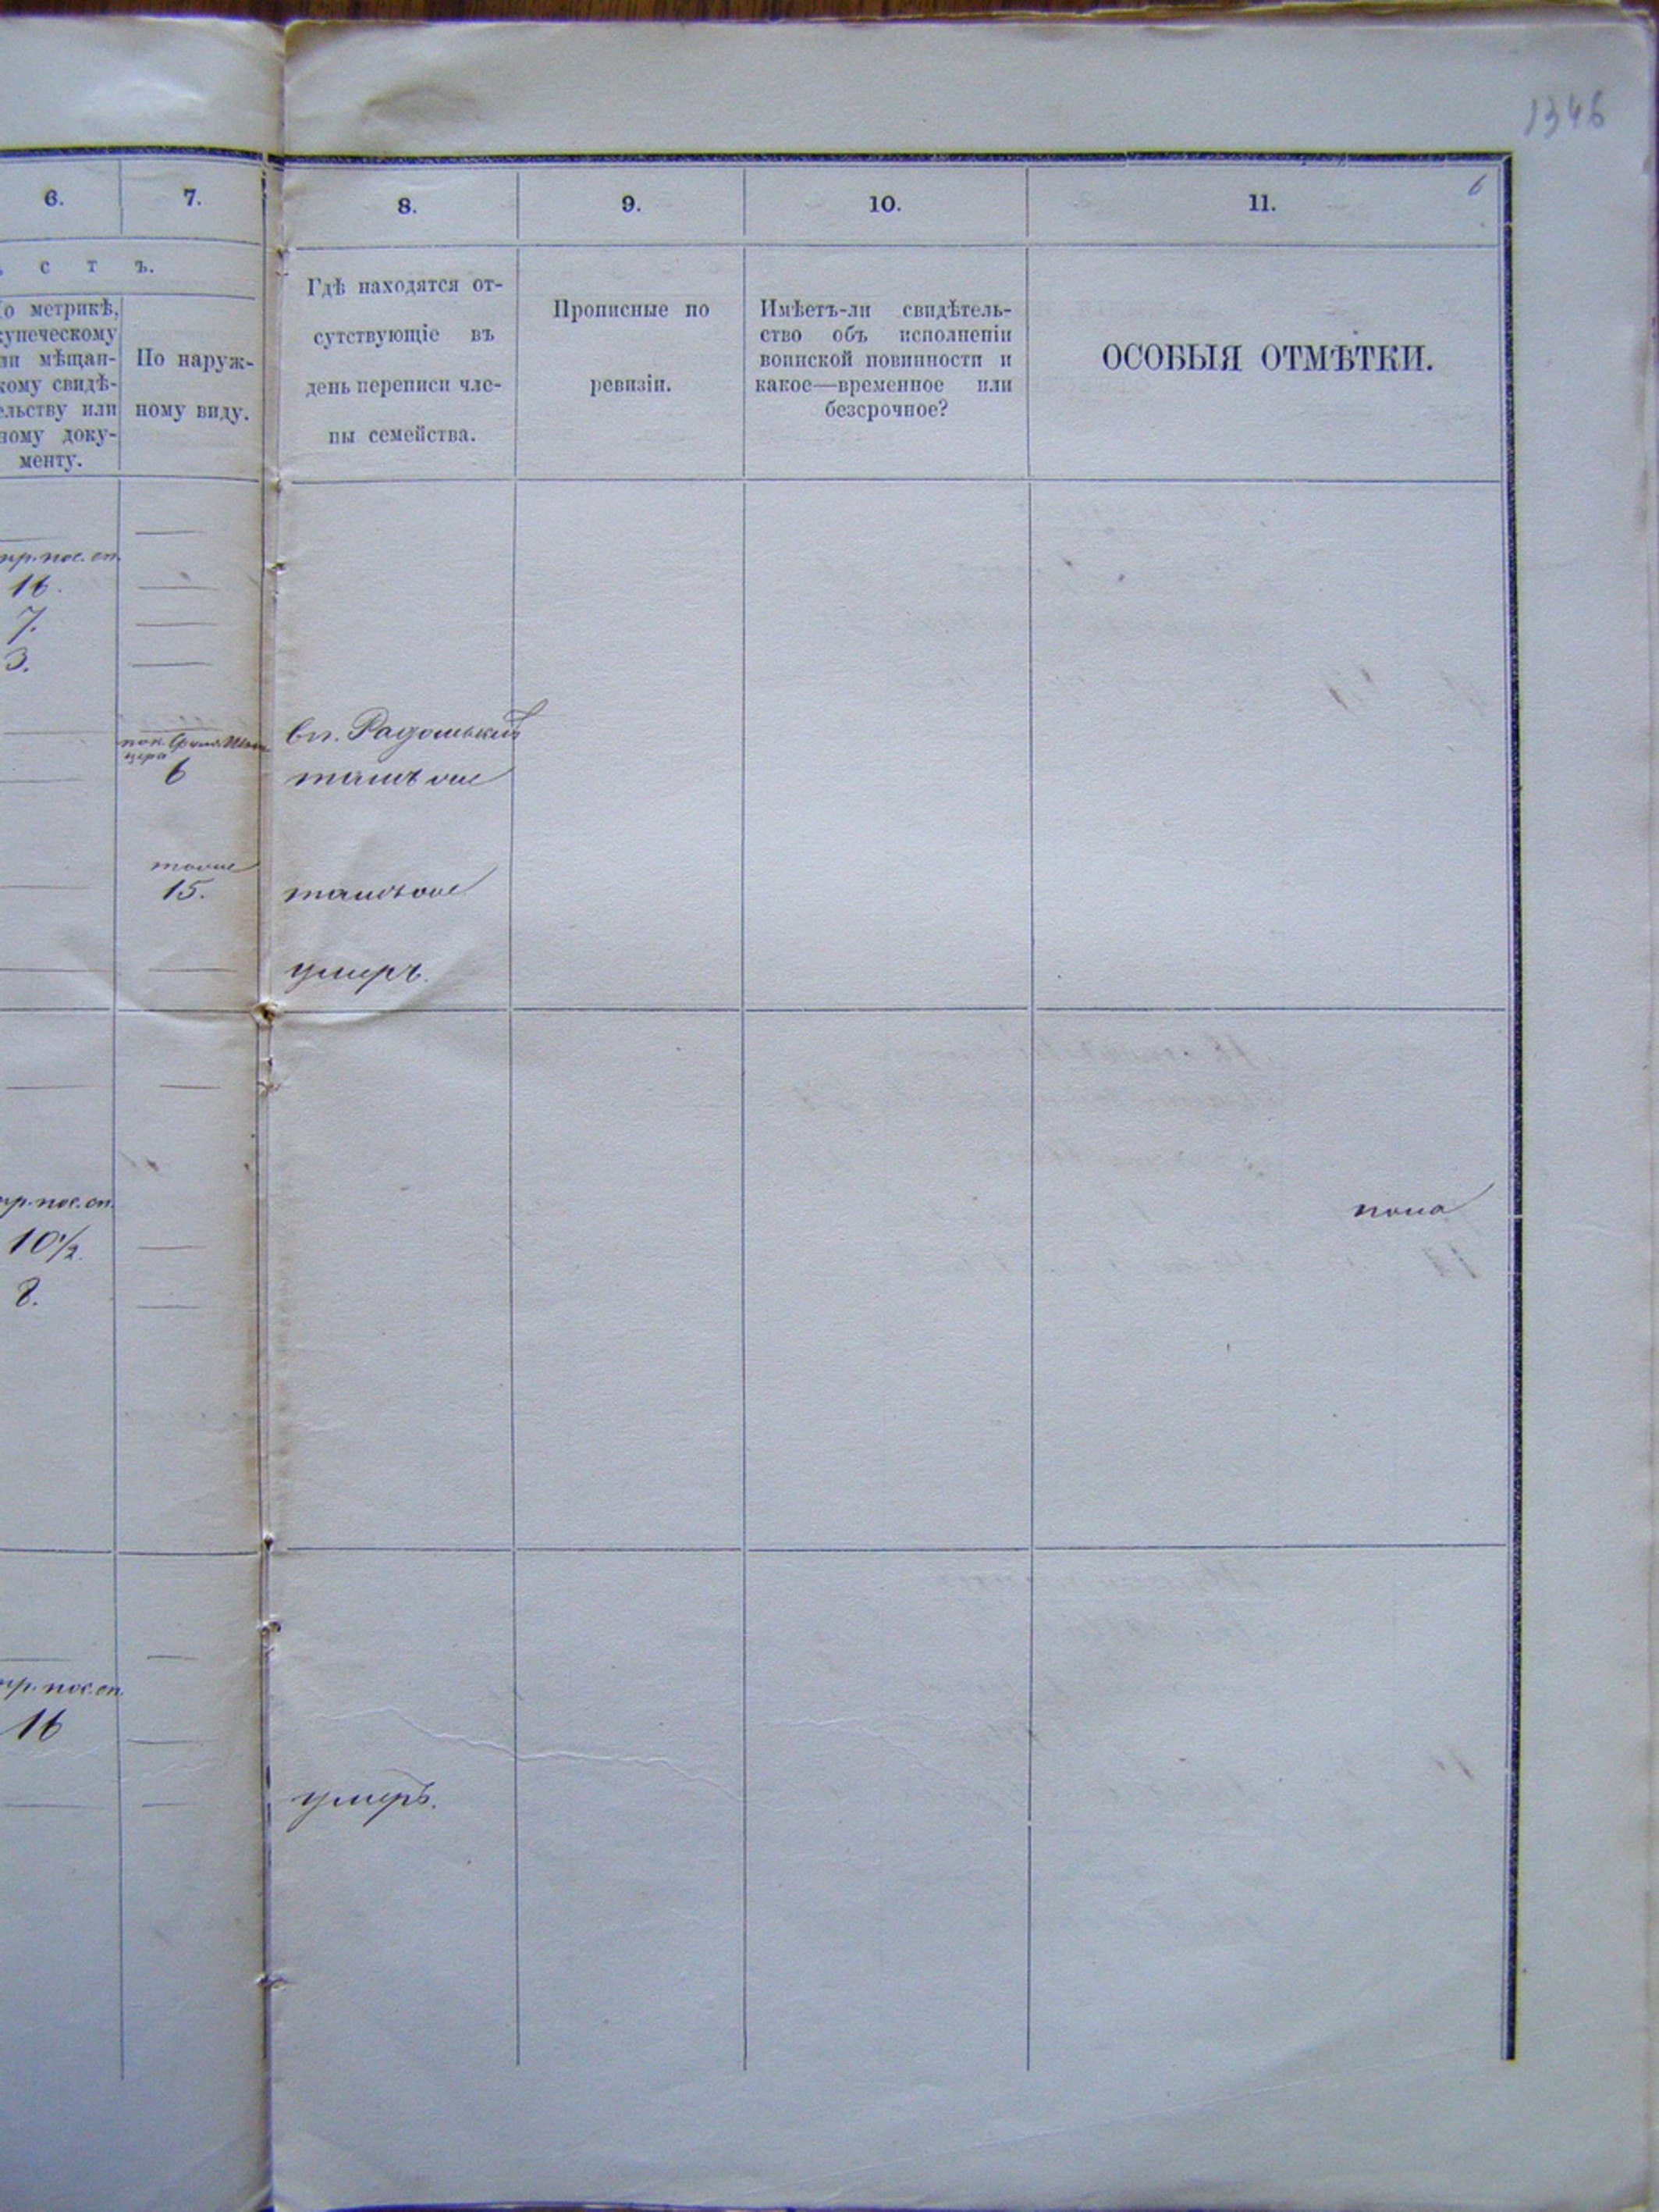 1346
6
6.
7.
8.
9.
10.
11.
с т ъ.
о метрикѣ,
купеческому
ли мѣщан-
кому свидѣ-
ельству или
ному доку-
менту.
По наруж-
ному виду.
Гдѣ находятся от-
сутствующіе въ
день переписи чле-
ны семейства.
Прописные по
ревизіи.
Имѣетъ-ли свидѣтель-
ство объ исполненіи
воинской повинности и
какое—временное или
безсрочное?
ОСОБЫЯ ОТМѢТКИ.
пр. пос. сп.
16.
7.
3.
пок.
6
вп.
тамъ же
тоже
15.
тамъ же
умеръ.
пр. пос. сп.
10 1/2.
8.
пр. пос. сп.
16
умеръ.